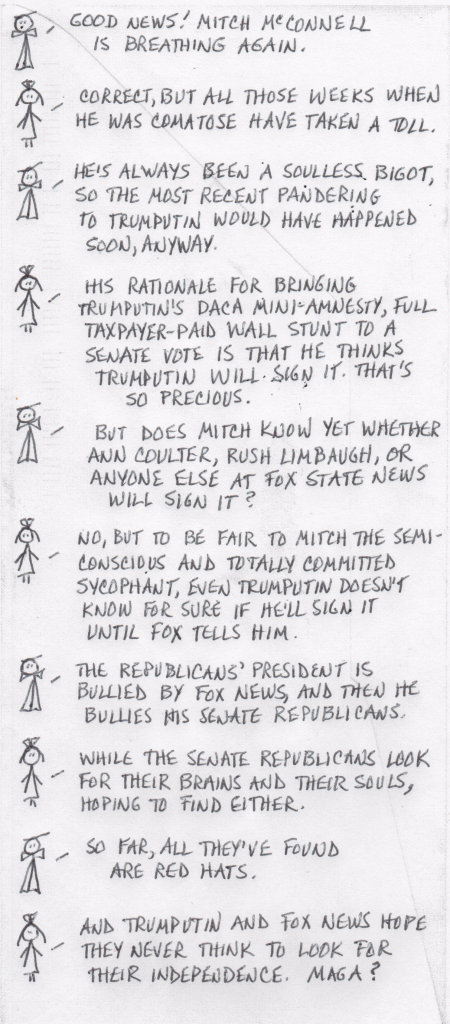 GOOD NEWS! MITCH McCONNELL
IS BREATHING AGAIN.
CORRECT, BUT ALL THOSE WEEKS WHEN
HE WAS COMATOSE HAVE TAKEN A TOLL.
HE'S ALWAYS BEEN A SOULLESS BIGOT,
SO THE MOST RECENT PANDERING
TO TRUMPUTIN WOULD HAVE HAPPENED
SOON, ANYWAY.
HIS RATIONALE FOR BRINGING
TRUMPUTIN'S DACA MINI-AMNESTY, FULL
TAXPAYER-PAID WALL STUNT TO A
SENATE VOTE IS THAT HE THINKS
TRUMPUTIN WILL SIGN IT. THAT'S
SO PRECIOUS.
BUT DOES MITCH KNOW YET WHETHER
ANN COULTER, RUSH LIMBAUGH, OR
ANYONE ELSE AT FOX STATE NEWS
WILL SIGN IT?
NO, BUT TO BE FAIR TO MITCH THE SEMI-
CONSCIOUS AND TOTALLY COMMITTED
SYCOPHANT, EVEN TRUMPUTIN DOESN'T
KNOW FOR SURE IF HE'LL SIGN IT
UNTIL FOX TELLS HIM.
THE REPUBLICANS' PRESIDENT IS
BULLIED BY FOX NEWS, AND THEN HE
BULLIES HIS SENATE REPUBLICANS.
WHILE THE SENATE REPUBLICANS LOOK
FOR THEIR BRAINS AND THEIR SOULS,
HOPING TO FIND EITHER.
SO FAR, ALL THEY'VE FOUND
ARE RED HATS.
AND TRUMPUTIN AND FOX NEWS HOPE
THEY NEVER THINK TO LOOK FOR
THEIR INDEPENDENCE. MAGA?